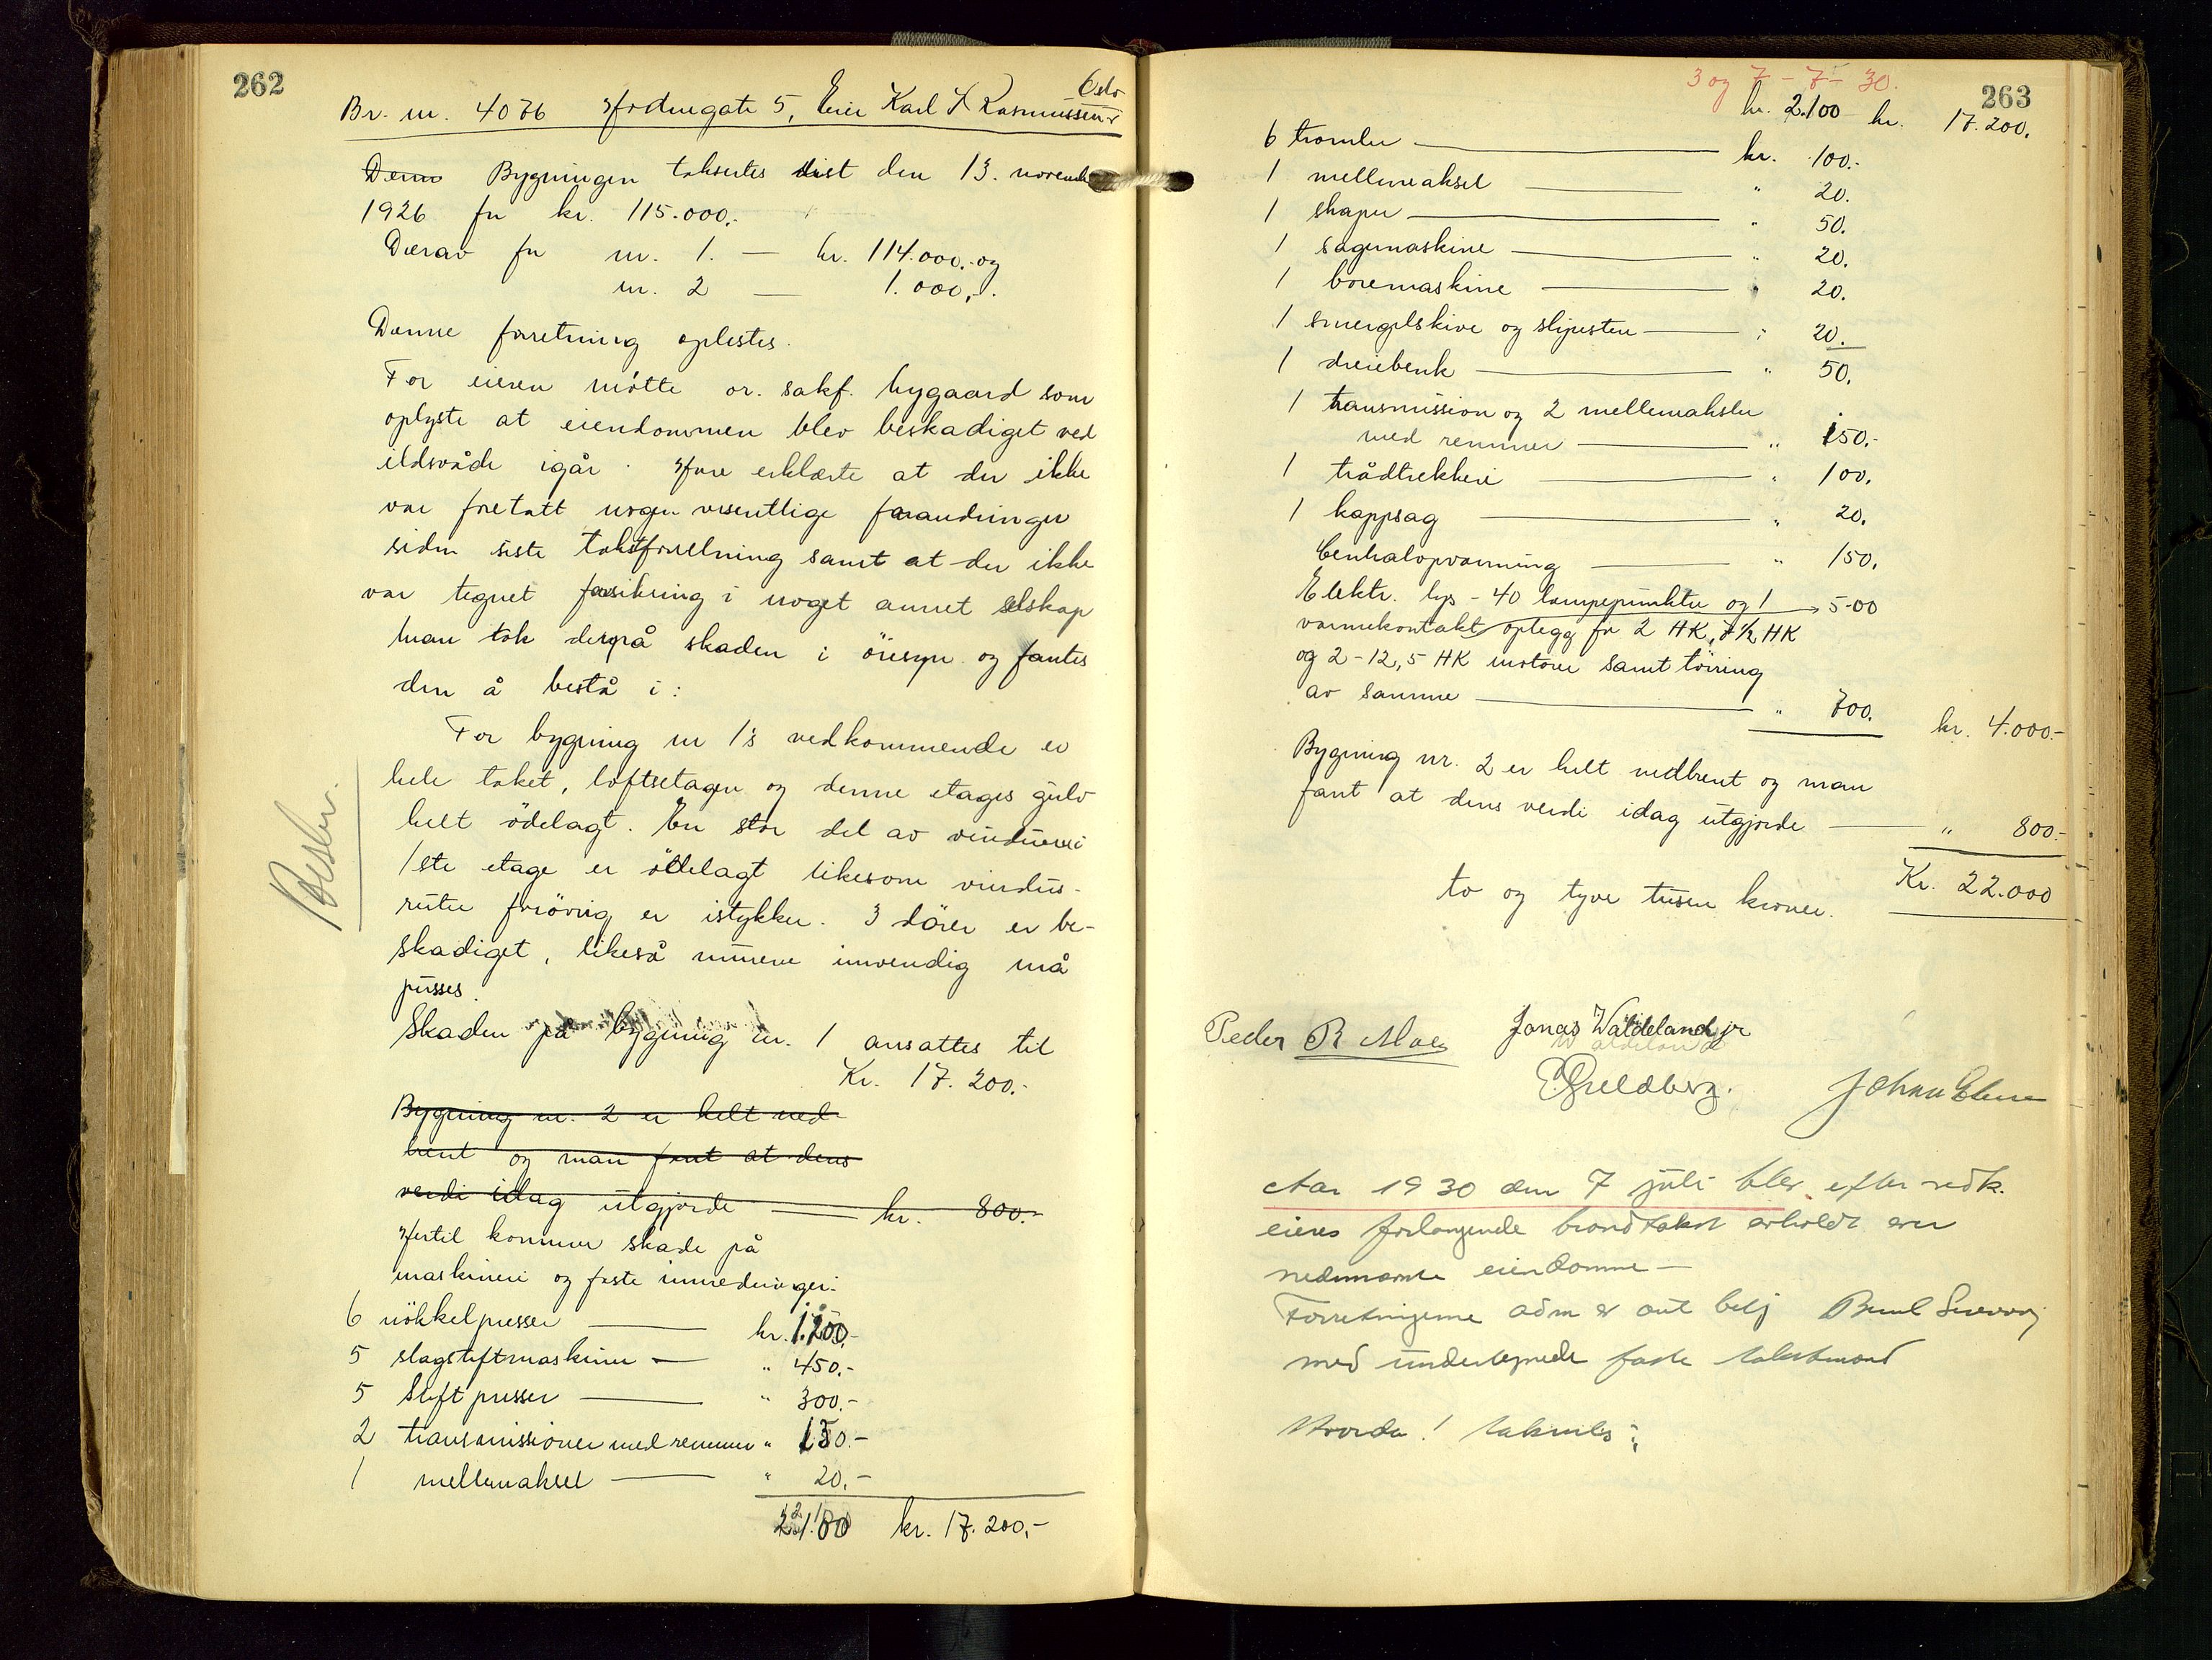 262
Oslo
Br. nr. 4076 Hodnegate 5, Eier Karl L Rasmussen
Denne Bygningen takseertes sist den 13. november
1926 for kr. 115.000.-
Derav for nr. 1. — kr. 114.000.- og
nr. 2 — 1.000,-.
Denne forretning oplestes.
For eieren møtte or. sakf. Nygaard som
oplyste at eiendommen blev beskadiget ved
ildsvåde igår. Han erklærte at der ikke
var foretatt nogen vesentlige forandringer
siden siste takstforretning samt at der ikke
var tegnet forsikring i noget annet selskap
Man tok derpå skaden i øiesyn og fantes
den å bestå i:
For bygning nr 1's vedkommende er
hele taket, loftsetagen og denne etages gulv
helt ödelagt. En stor del av vinduene i
1ste etage er ödelagt likesom vindus-
ruter forövrig er istykker. 3 dörer er be-
skadiget, likeså murene innvendig må
pusses.
Skaden på bygning nr. 1 ansattes til
Kr. 17.200.-
Bygning nr. 2 er helt ned-
brent og man fant at dens
verdi idag utgjorde — kr. 800.-
Hertil kommer skade på
maskineri og faste innredninger:
6 nökkelpresser — kr. 1.200.-
5 slagstiftmaskiner — " 450.-
5 Stiftpresser — " 300.-
2 transmissioner med remmer " 130.-
1 mellemaksel — " 20.-
2.100 kr. 17.200,-
3 og 7 - 7 - 30.
263
kr. 2.100 kr. 17.200.
6 tromler — kr. 100.-
1 mellemaksel — " 20.
1 shaper — " 50.
1 sagemaskine — " 20.
1 boremaskine — " 20.
1 smergelskive og slipesten — " 20.
1 dreiebenk — " 50.
1 transmission og 2 mellemaksler
med remmer — " 150.-
1 trådtrekkeri — " 100.
1 kappsag — " 20.
Centralopvarming — " 150.
Elektr. lys - 40 lampepunkter og 1 500
varmekontakt oplegg for 2 HK, 7½ HK
og 2-12,5 HK motorer samt törring
av samme — " 700. kr. 4.000.-
Bygning nr. 2 er helt nedbrent og man
fant at dens verdi idag utgjorde — " 800.-
Kr. 22.000
to og tyve tusen kroner.
Peder R Moe Jonas Waldeland jr
Waldeland
Johan
Aar 1930 den 7 juli blev efter nedk.
eieres forlangende brandtakst avholdt over
nedennævnte eiendomme —
Forretningerne adm er aut betj
med undertegnede faste takstmænd
takseertes: